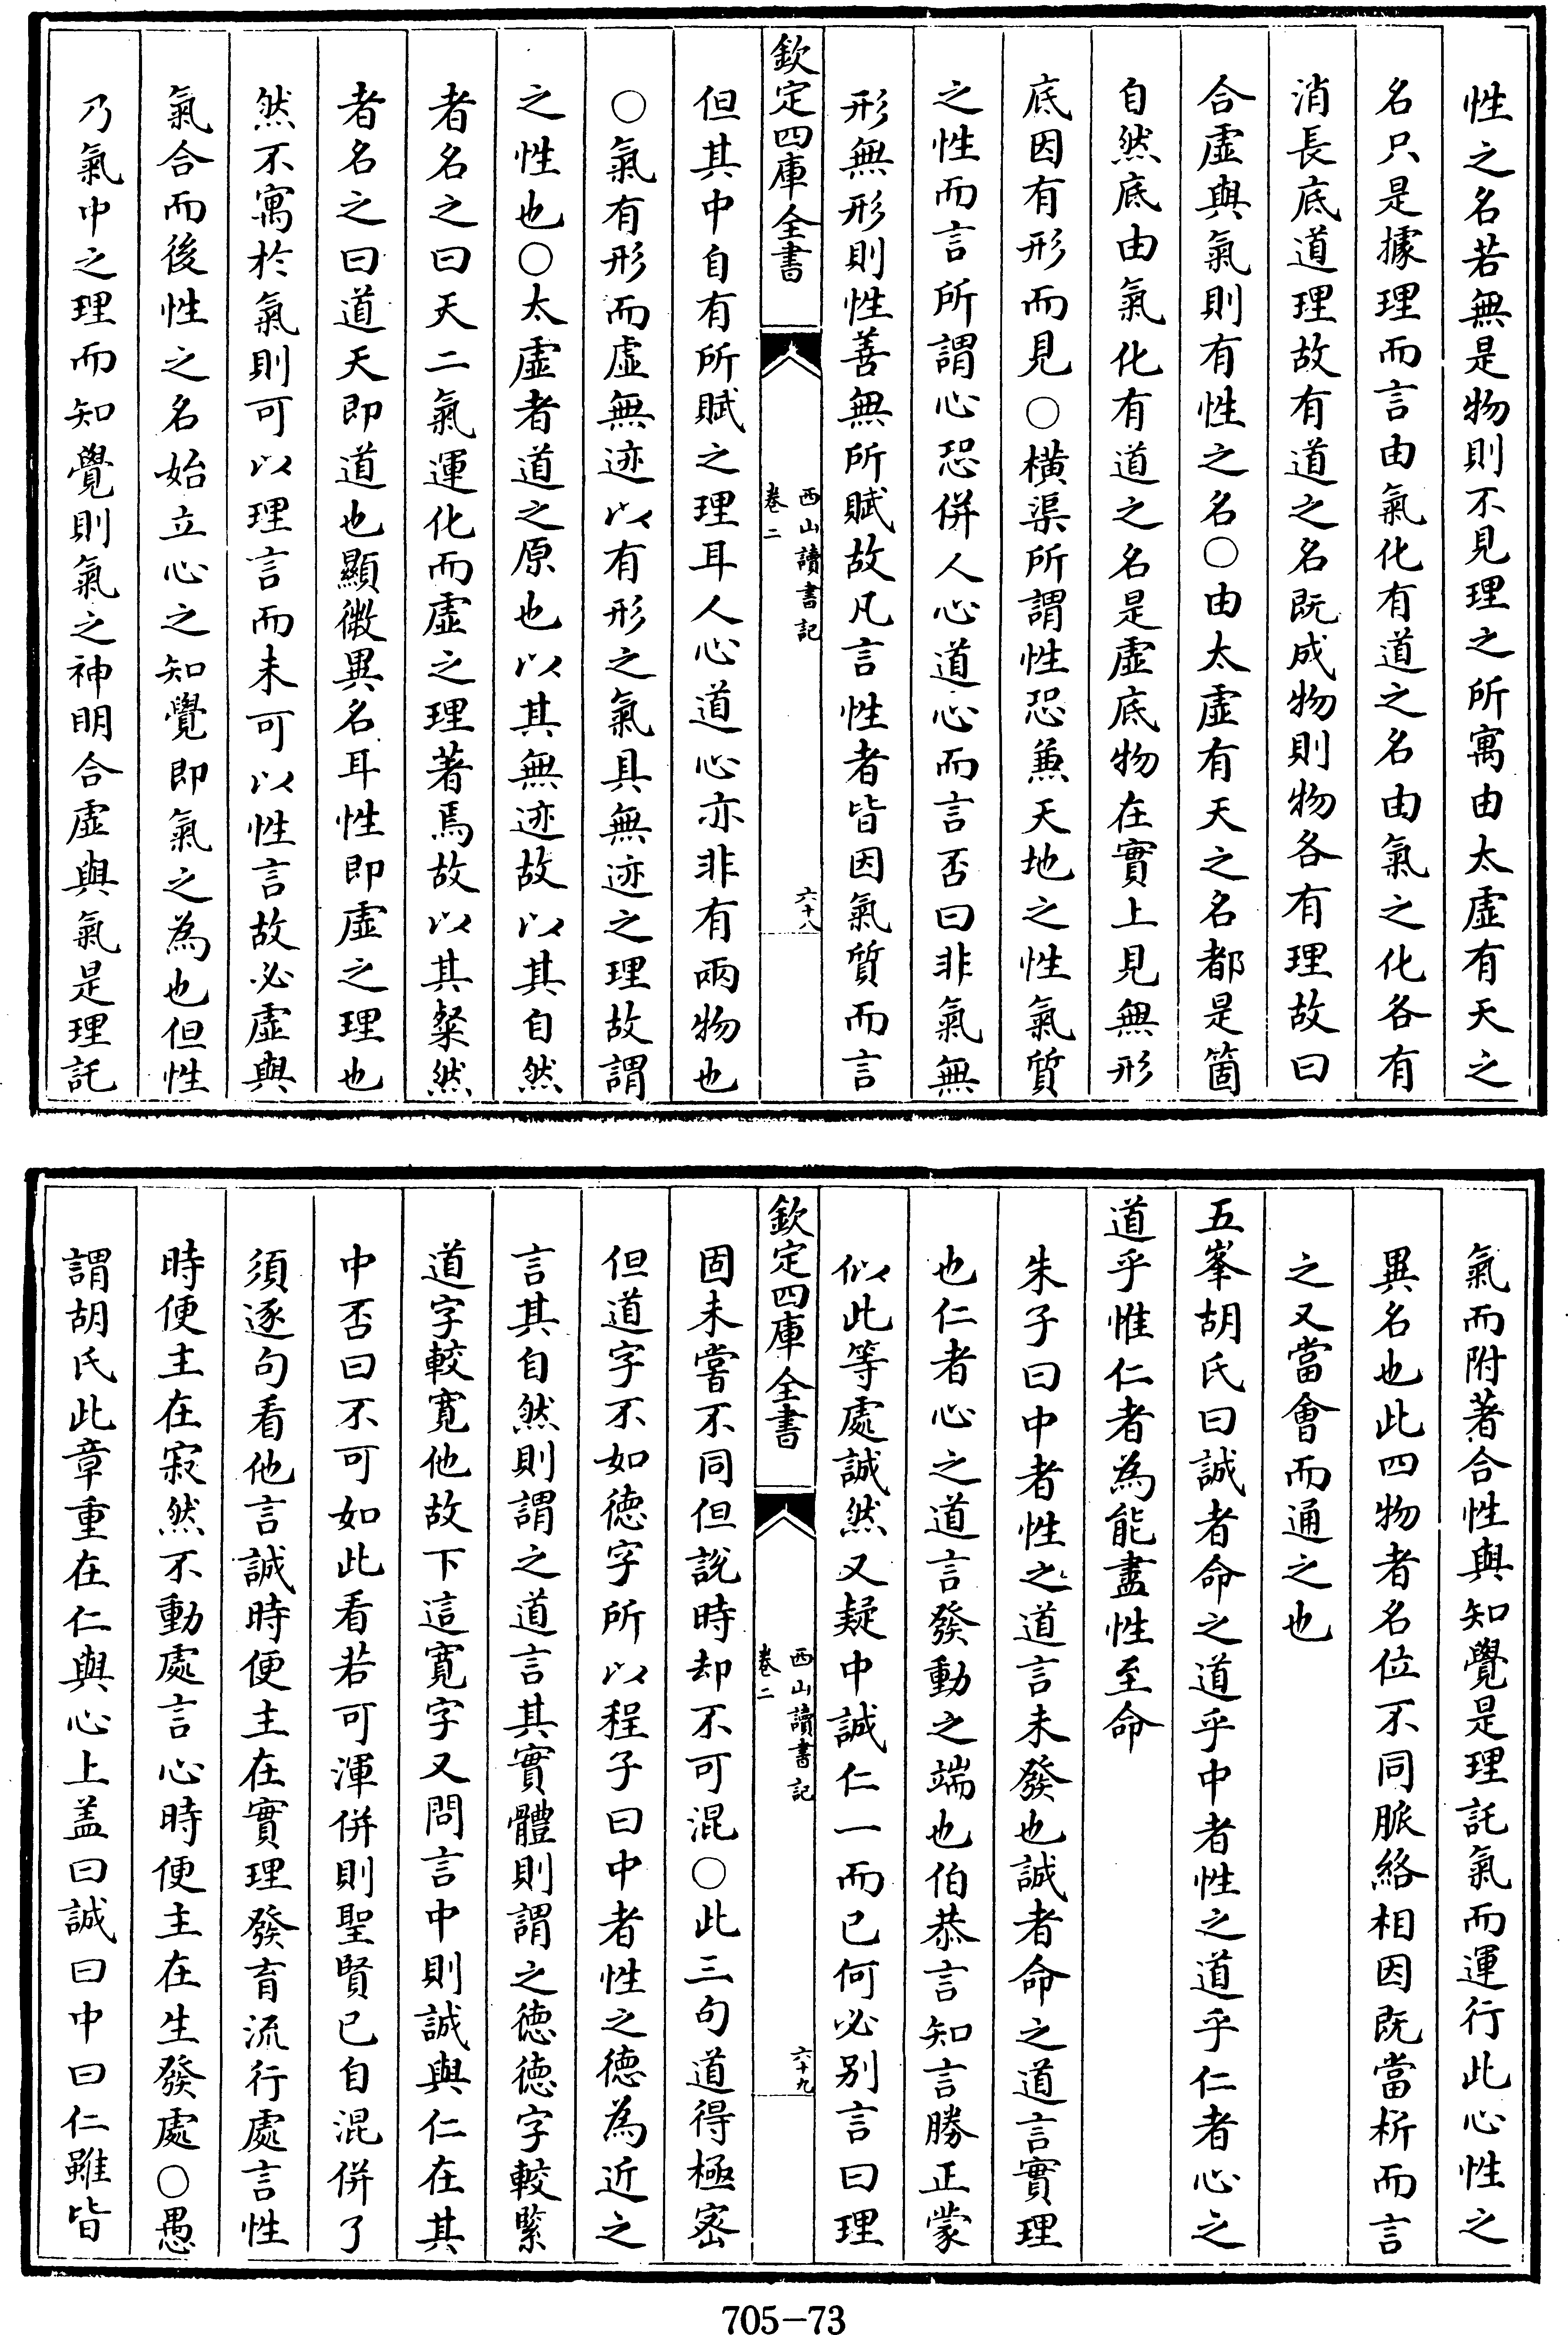 性之名若無是物則不見理之所寓由太虛有天之
名只是據理而言由氣化有道之名由氣之化各有
消長底道理故有道之名既成物則物各有理故曰
合虛與氣則有性之名○由太虛有天之名都是箇
自然底由氣化有道之名是虛底物在實上見無形
底因有形而見○橫渠所謂性恐兼天地之性氣質
之性而言所謂心恐併人心道心而言否曰非氣無
形無形則性善無所賦故凡言性者皆因氣質而言
欽定四庫全書
西山讀書記
卷二
六十八
但其中自有所賦之理耳人心道心亦非有兩物也
○氣有形而虛無迹以有形之氣具無迹之理故謂
之性也○太虛者道之原也以其無迹故以其自然
者名之曰天二氣運化而虛之理著焉故以其粲然
者名之曰道天即道也顯微異名耳性即虛之理也
然不寓於氣則可以理言而未可以性言故必虛與
氣合而後性之名始立心之知覺即氣之為也但性
乃氣中之理而知覺則氣之神明合虛與氣是理託
氣而附著合性與知覺是理託氣而運行此心性之
異名也此四物者名位不同脈絡相因既當析而言
之又當會而通之也
五峯胡氏曰誠者命之道乎中者性之道乎仁者心之
道乎惟仁者為能盡性至命
朱子曰中者性之道言未發也誠者命之道言實理
也仁者心之道言發動之端也伯恭言知言勝正蒙
似此等處誠然又疑中誠仁一而已何必别言曰理
欽定四庫全書
西山讀書記
卷二
六十九
固未嘗不同但說時却不可混○此三句道得極宻
但道字不如徳字所以程子曰中者性之徳為近之
言其自然則謂之道言其實體則謂之徳徳字較緊
道字較寛他故下這寛字又問言中則誠與仁在其
中否曰不可如此看若可渾併則聖賢已自混併了
須逐句看他言誠時便主在實理發育流行處言性
時便主在寂然不動處言心時便主在生發處○愚
謂胡氏此章重在仁與心上盖曰誠曰中曰仁雖皆
705-73